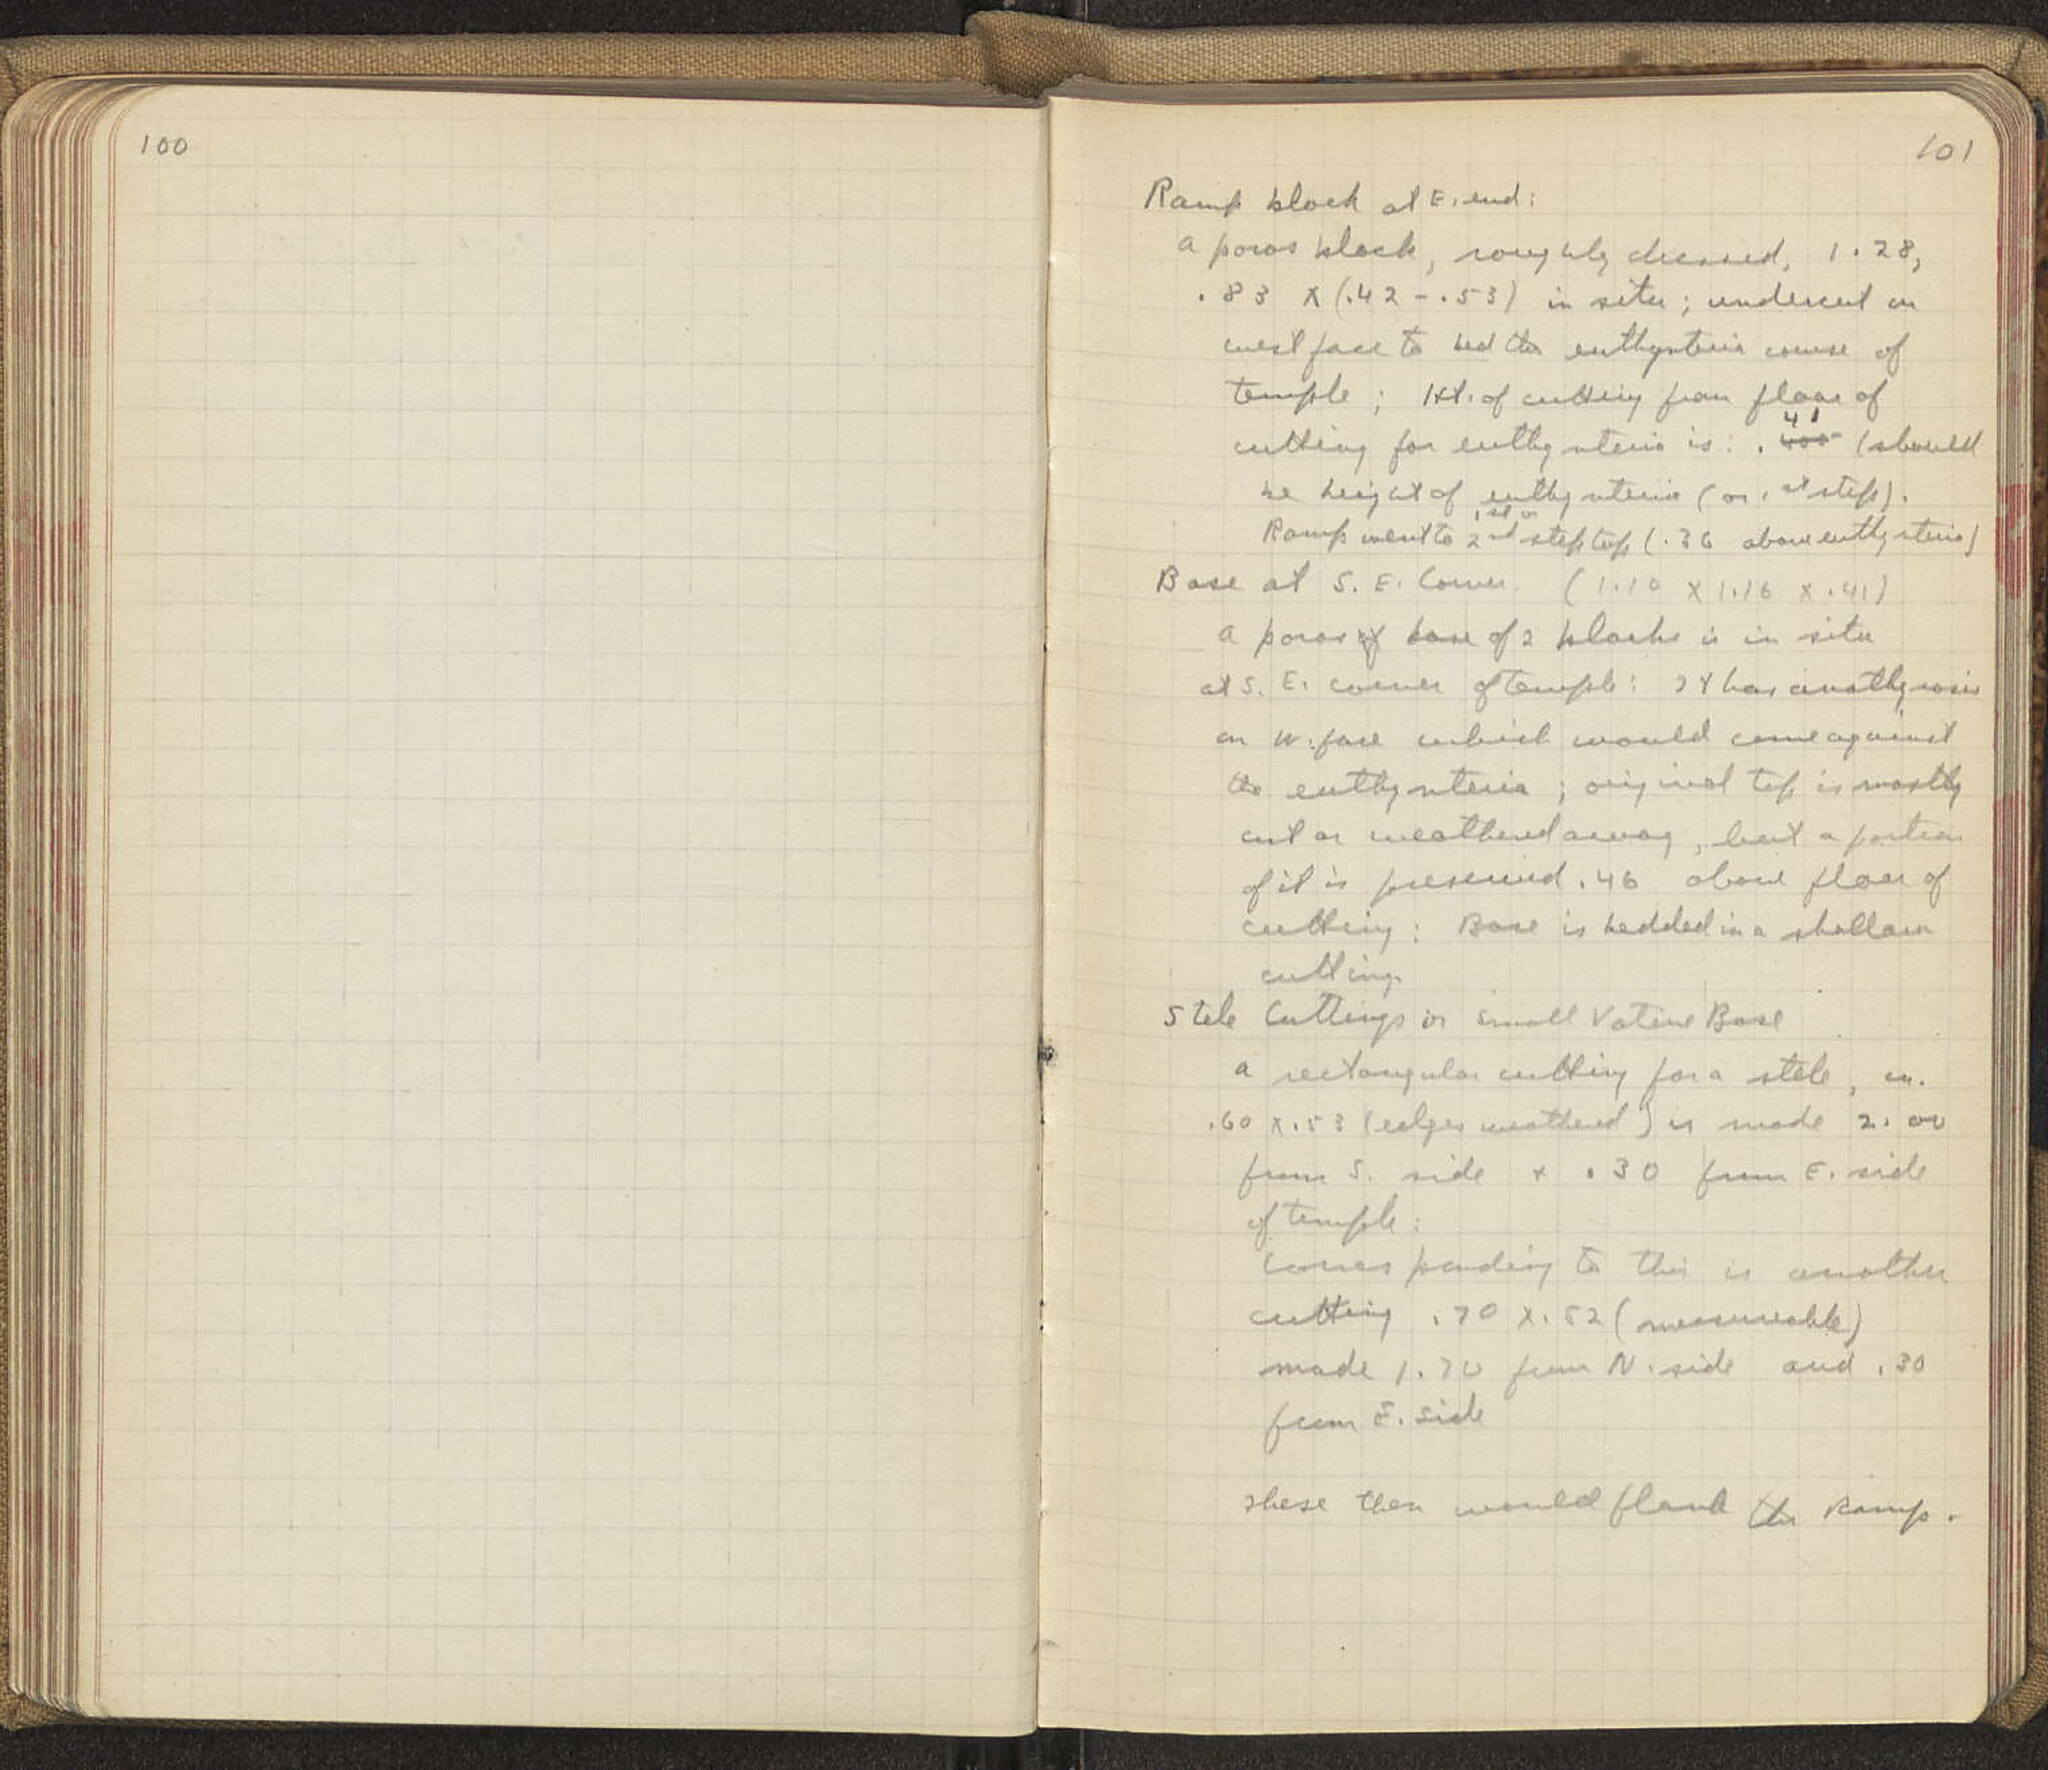 100
101
Ramp block at E. end:
a poros block, roughly dressed, 1.28,
.83 x (.42 - .53) in situ; undercut on
west face to bed the euthynteria course of
temple; Ht. of cutting from floor of
cutting for euthynteria is: .41 (should
be height of euthynteria (or 1st step).
Ramp went to 1st or 2nd step top (.36 above euthynteria)
Base at S. E. Corner. (1.10 x 1.16 x .41)
a poros base of 2 blocks is in situ
at S. E. corner of temple: It has anathyrosis
on W. face which would come against
the euthynteria; original top is mostly
cut or weathered away, but a portion
of it is preserved .46 above floor of
cutting: Base is bedded in a shallow
cutting.
Stele Cuttings or Small Votive Base
a rectangular cutting for a stele, ca.
.60 x .53 (edges weathered) is made 2.00
from S. side + .30 from E. side
of temple:
corresponding to this is another
cutting .70 x .52 (measureable)
made 1.70 from N. side and .30
from E. side
These then would flank the Ramp.